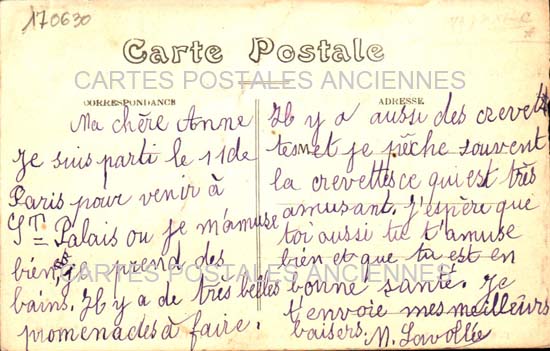 170630
Carte Postale
CARTES POSTALES ANCIENNES
CORRESPONDANCE
ADRESSE
Ma chère Anne
Je suis parti le 11 de
Paris pour venir à
St Palais ou je m'amuse
bien je prend des
bains. Il y a de très belles
promenades à faire.
Il y a aussi des crevet
tes et je pêche souvent
la crevettes ce qui est très
amusant. J'espère que
toi aussi tu t'amuse
bien et que tu est en
bonne santé. Je
t'envoie mes meilleurs
baisers. M. Lavollée
CARTES POSTALES ANCIENNES